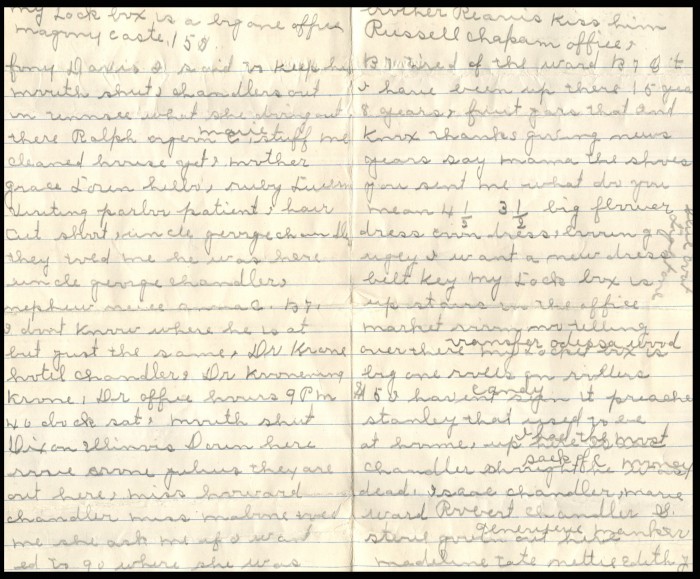 my Lock box is a big one office
magmy caste, 150
fony Davis I said to keep hy
mouth shut, chandlers out
in runnee what she bring out
there Ralph
marie stuff me
cleaned house yet, mother
grace Loren hills, ruby Lucim
Visiting parlor patient, hair
Cut short, uncle george chandle
they toed me he was here
uncle george chandler,
nephew niece B7,
I dont Know where he is at
but just the same, Dr Krone
hotel chandler, Dr Kronening
Krone, Dr office hours 9 Pm
40 clock sat, mouth shut
Dixon Illinois Down here
rose they are
out here, miss howard
chandler miss malone toed
me she ask me if I want
ed to go where she was
brother Reanis Kiss him
Russell chapam office,
B7, tired of the ward B7 & 't
I have been up there 15 yea
8 years, fruit jars that and
Knox thanks, giving news
years say mama the shoes
you sent me what do you
mean 4 1/5 3 1/2 big flower
dress corn dress, brown go
ugly I want a new dress
belt key my Lock box is
up stairs in the office
market no telling
transfer odessa wood
over there my box is
big one rolls on rollers
candy
$150 have in it preache
stanley that used to be
at home, up
sack of
chandler she money
dead, Isaac chandler, marie
ward Robert chandler
genevieve
steve out here
madeline tate nettie edith y